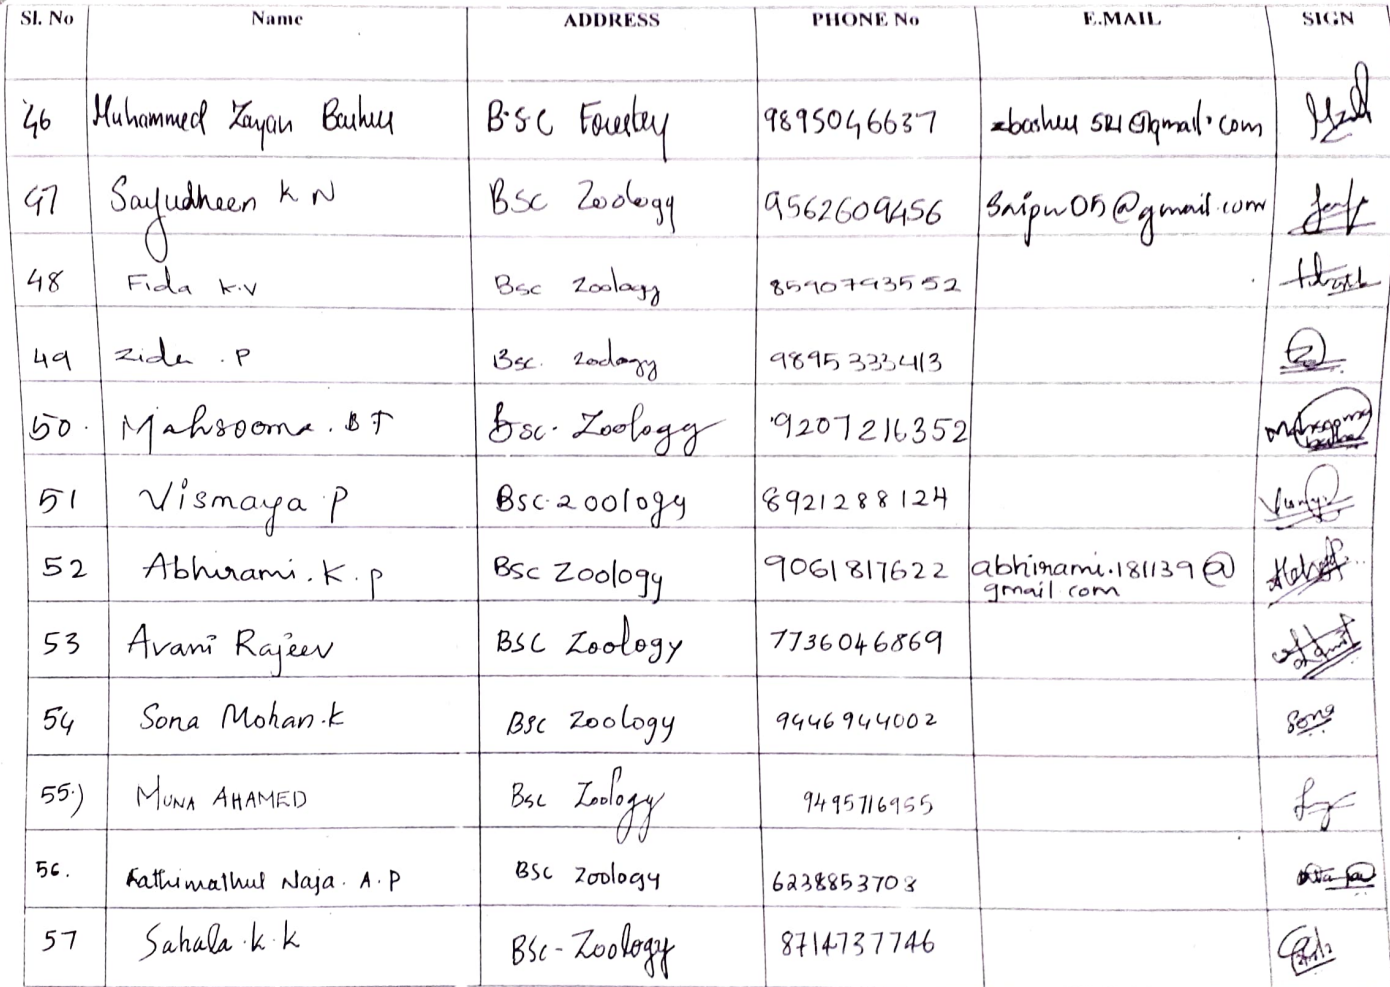 Sl. No Name ADDRESS PHONE No E.MAIL SIGN
46 Muhammed Zayan B.SC 9895046637
47 Sayudheen K N BSC Zoology 9562609456 @gmail.com
48 Fida K.V Bsc Zoology 8590793552
49 Zida . P Bsc. Zoology 9895333413
50. Mahsooma . B T Bsc. Zoology 9207216352
51 Vismaya P Bsc. Zoology 8921288124
52 Abhirami . K . p BSC Zoology 9061817622 abhirami.181139@
gmail.com
53 Avani Rajeev BSC Zoology 7736046869
54 Sona Mohan.k BSC Zoology 9446944002 Sona
55.) MUNA AHAMED BSC Zoology 9495716955
56. Fathimathul Naja. A.P BSC Zoology 6238853708
57 Sahala.k.k BSc-Zoology 8714737746